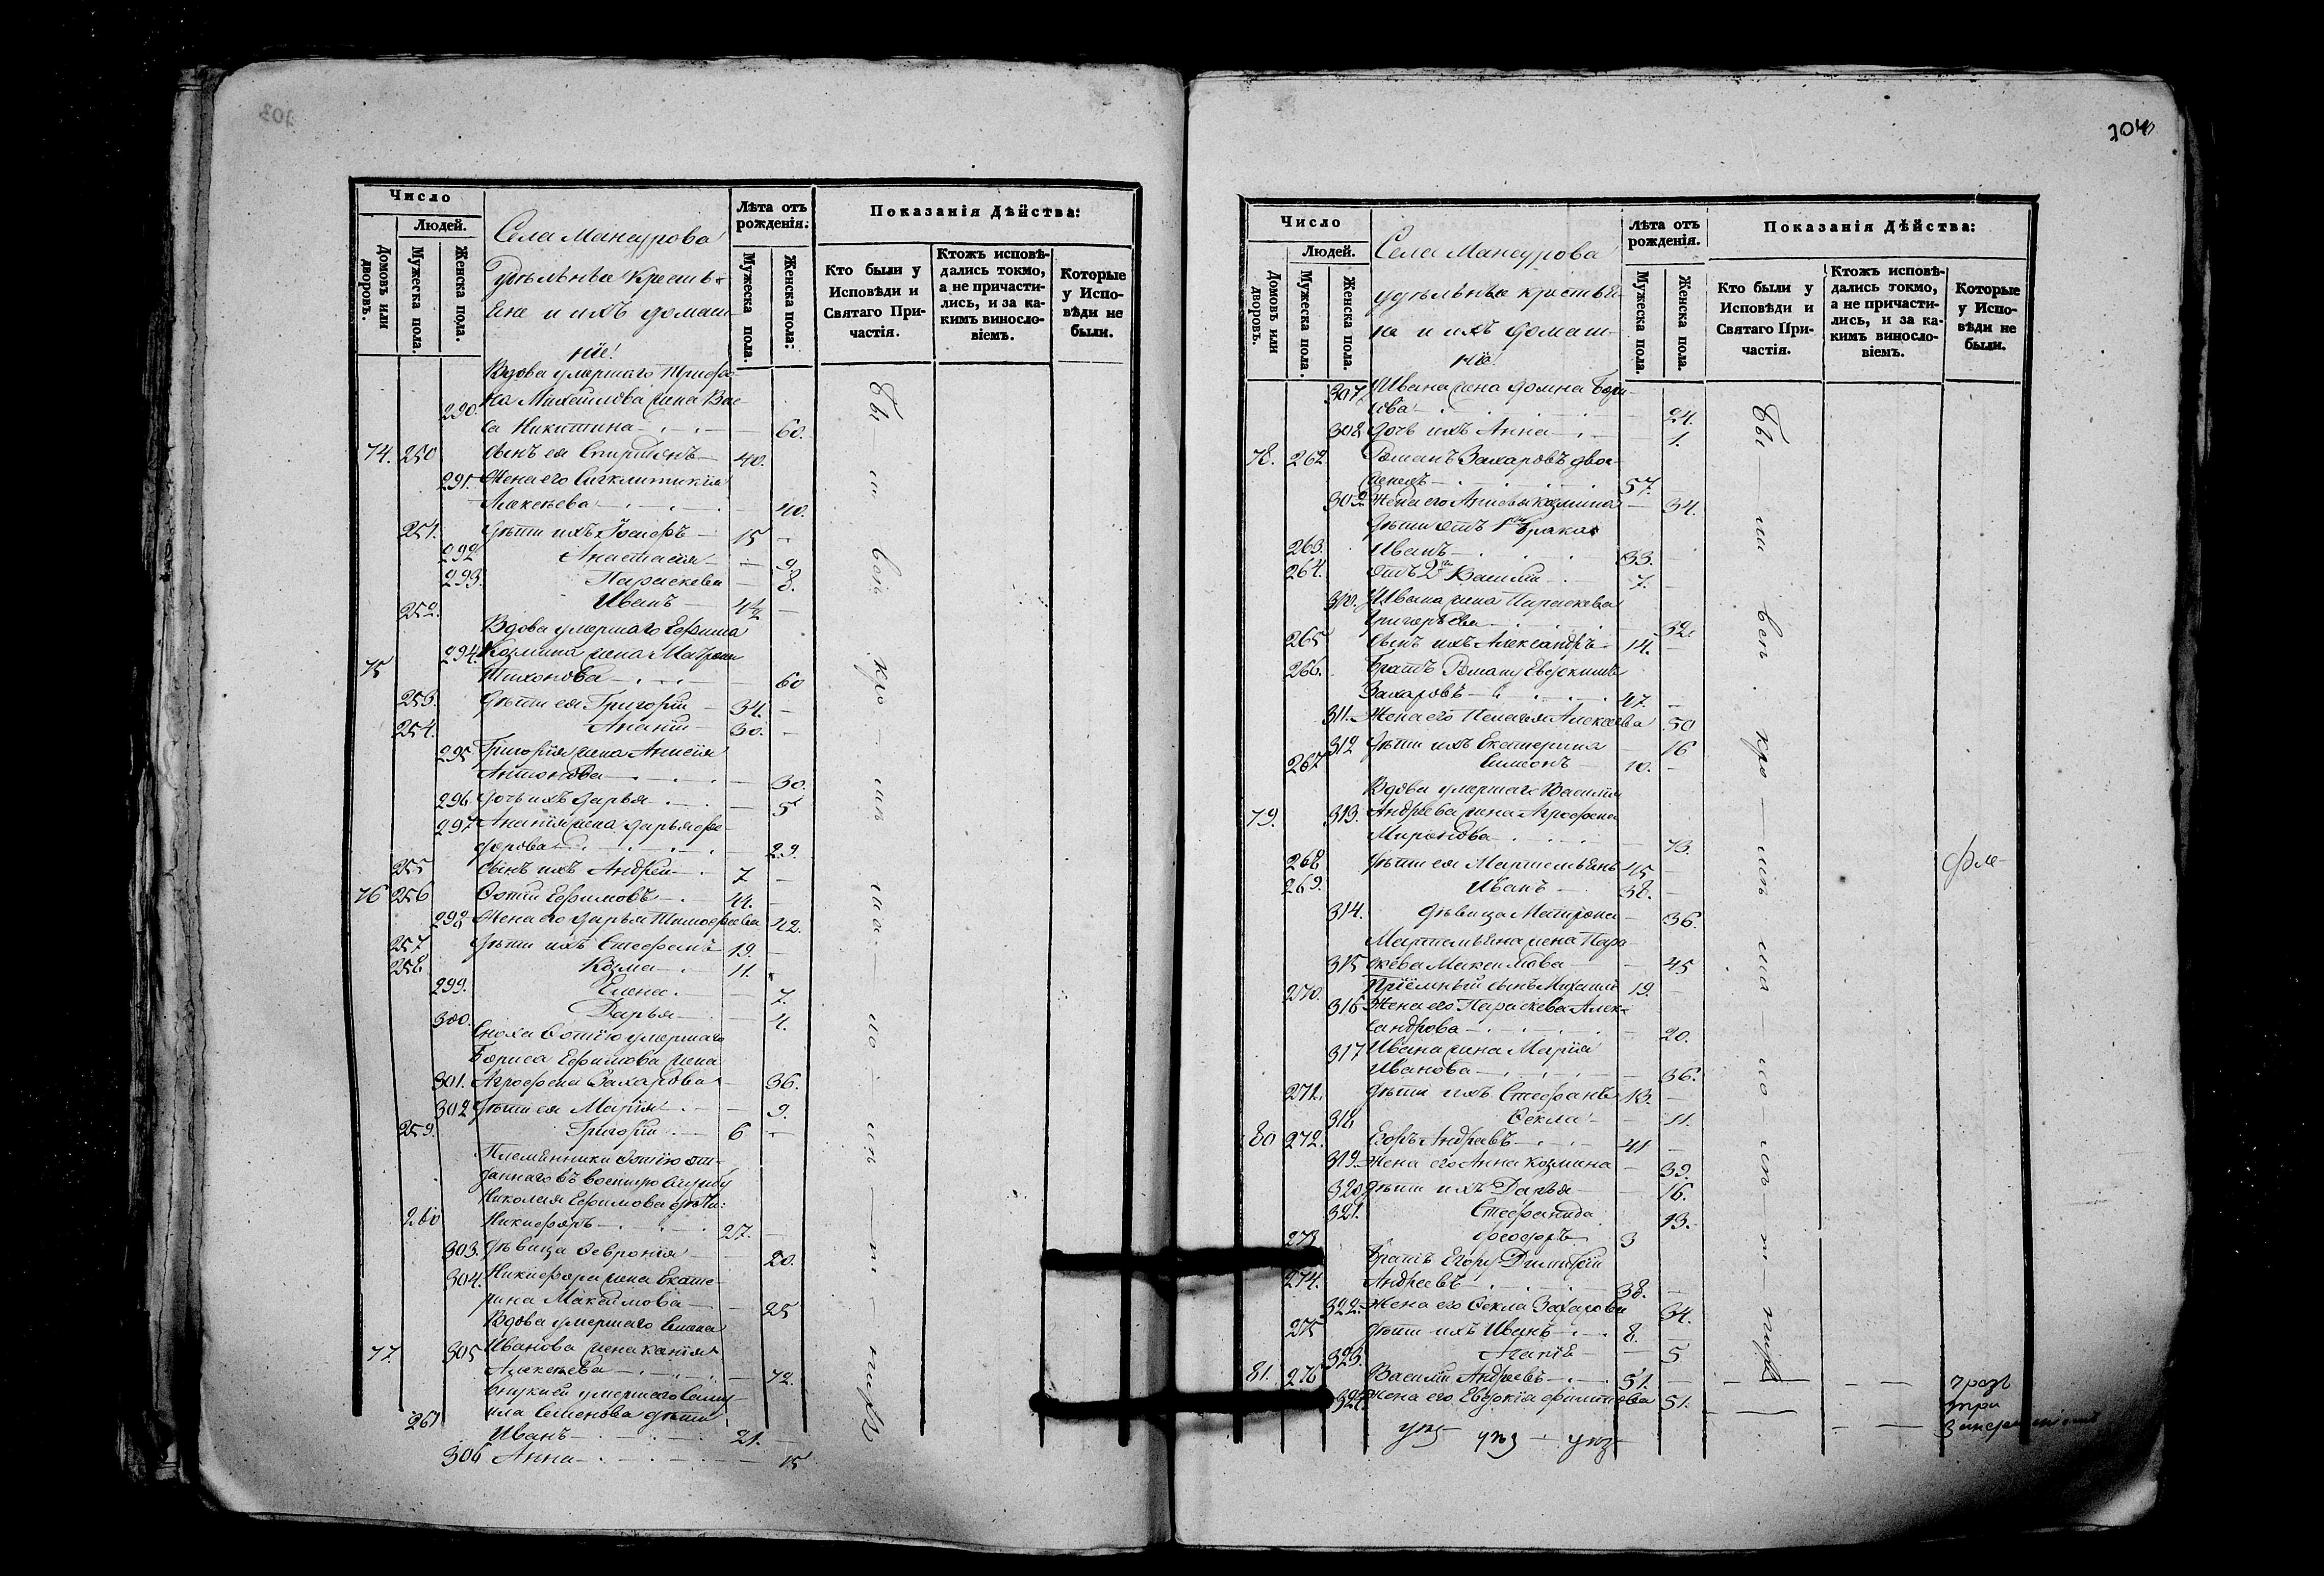 204
Число
Людей.
Домовъ или дворовъ.
Мужеска пола.
Женска пола.
Села Мансурова
удѣльные крестья-
не и ихъ домаш-
ніе:
Лѣта отъ рожденія:
Мужеска пола.
Женска пола:
Показанія Дѣйства:
Кто были у Исповѣди и Святаго Причастія.
Ктожъ исповѣдались токмо, а не причастились, и за какимъ винословіемъ.
Которые у Исповѣди не были.
Вдова умершаго Трифо-
290. на Михайлова жена Вас-
са Никитина 60.
74. 250 сынъ ея Спиридонъ 40.
291. Жена его Сигклитикія
Алексѣева 40.
251. дѣти ихъ Іосифъ 15
292 Анастасія 9
293. Параскева 8.
252. Иванъ 4½
Вдова умершаго Ефима
75 294. Козмина жена Матрона
Тихонова 60
253. дѣти ея Григорій 34.
254. Ананій 30.
295 Григорія жена Анисія
Антонова 30.
296. дочь ихъ Дарья 5
297 Ананія жена Дарья Фе-
дорова 29.
255 сынъ ихъ Андрей 7
76 256 Фотій Ефимовъ 44.
298 Жена его Дарья Тимофеева 42.
257. дѣти ихъ Стефанъ 19.
258 Козма 11.
299. Елена 7.
300. Дарья 4.
Сноха Фотію умершаго
Бориса Ефимова жена
301. Агрофена Захарова 36.
302 дѣти ея Марія 9.
259. Григорій 6
Племянники Фотію от-
даннаго въ военную службу
Николая Ефимова дѣти:
260 Никифоръ 27.
303. дѣвица Феврония 20.
304. Никифора жена Екате-
рина Максимова 25
Вдова умершаго Семена
77. 305 Иванова жена Ксенія
Алексѣева 72.
внуки ея умершаго Саму-
ила Семенова дѣти
261 Иванъ 21.
306 Анна 15
Число
Людей.
Домовъ или дворовъ.
Мужеска пола.
Женска пола.
Села Мансурова
удѣльные крестья-
не и ихъ домаш-
ніе:
Лѣта отъ рожденія.
Мужеска пола.
Женска пола.
Показанія Дѣйства:
Кто были у Исповѣди и Святаго Причастія.
Ктожъ исповѣдались токмо, а не причастились, и за какимъ винословіемъ.
Которые у Исповѣди не были.
307 Ивана жена Домна
24.
308. дочь ихъ Анна 1.
78. 262 Романъ Захаровъ двое-
женецъ 57.
309 Жена его Козмина 34.
дѣти отъ 1го брака
263. Иванъ 33.
264. отъ 2го Василій 7.
310. Ивана жена Параскева
Григорьева 32.
265 сынъ ихъ Александръ 14.
266. Братъ Роману Евдокимъ
Захаровъ 47.
311. Жена его Пелагея Алексѣева 50
312 дѣти ихъ Екатерина 16
267 Симеонъ 10.
Вдова умершаго Василия
79. 313. Андреева жена Агрофена
Миронова 73.
268 дѣти ея Мартемьянъ 45
269. Иванъ 38.
314. дѣвица Матрона 36.
Мартемьяна жена Пара-
315 скева Максимова 45
270. Пріёмный сынъ Михаилъ 19.
316 Жена его Параскева Алек-
сандрова 20.
317 Ивана жена Марія
Иванова 36.
271. дѣти ихъ Стефанъ 13.
318 Фекла 11.
80 272. Егоръ Андреевъ 41
319. Жена его Анна Козмина 39.
320 дѣти ихъ Дарья 16.
321. Стефанида 13.
273 Феодоръ 3
Братъ Егору Димитрій
274. Андреевъ 38.
322. Жена его Фекла Захарова 34.
275 дѣти ихъ Иванъ 8.
323. Агапія 5
81. 276 Василій Андреевъ 51.
324. Жена его Евдокія Филипова 51.